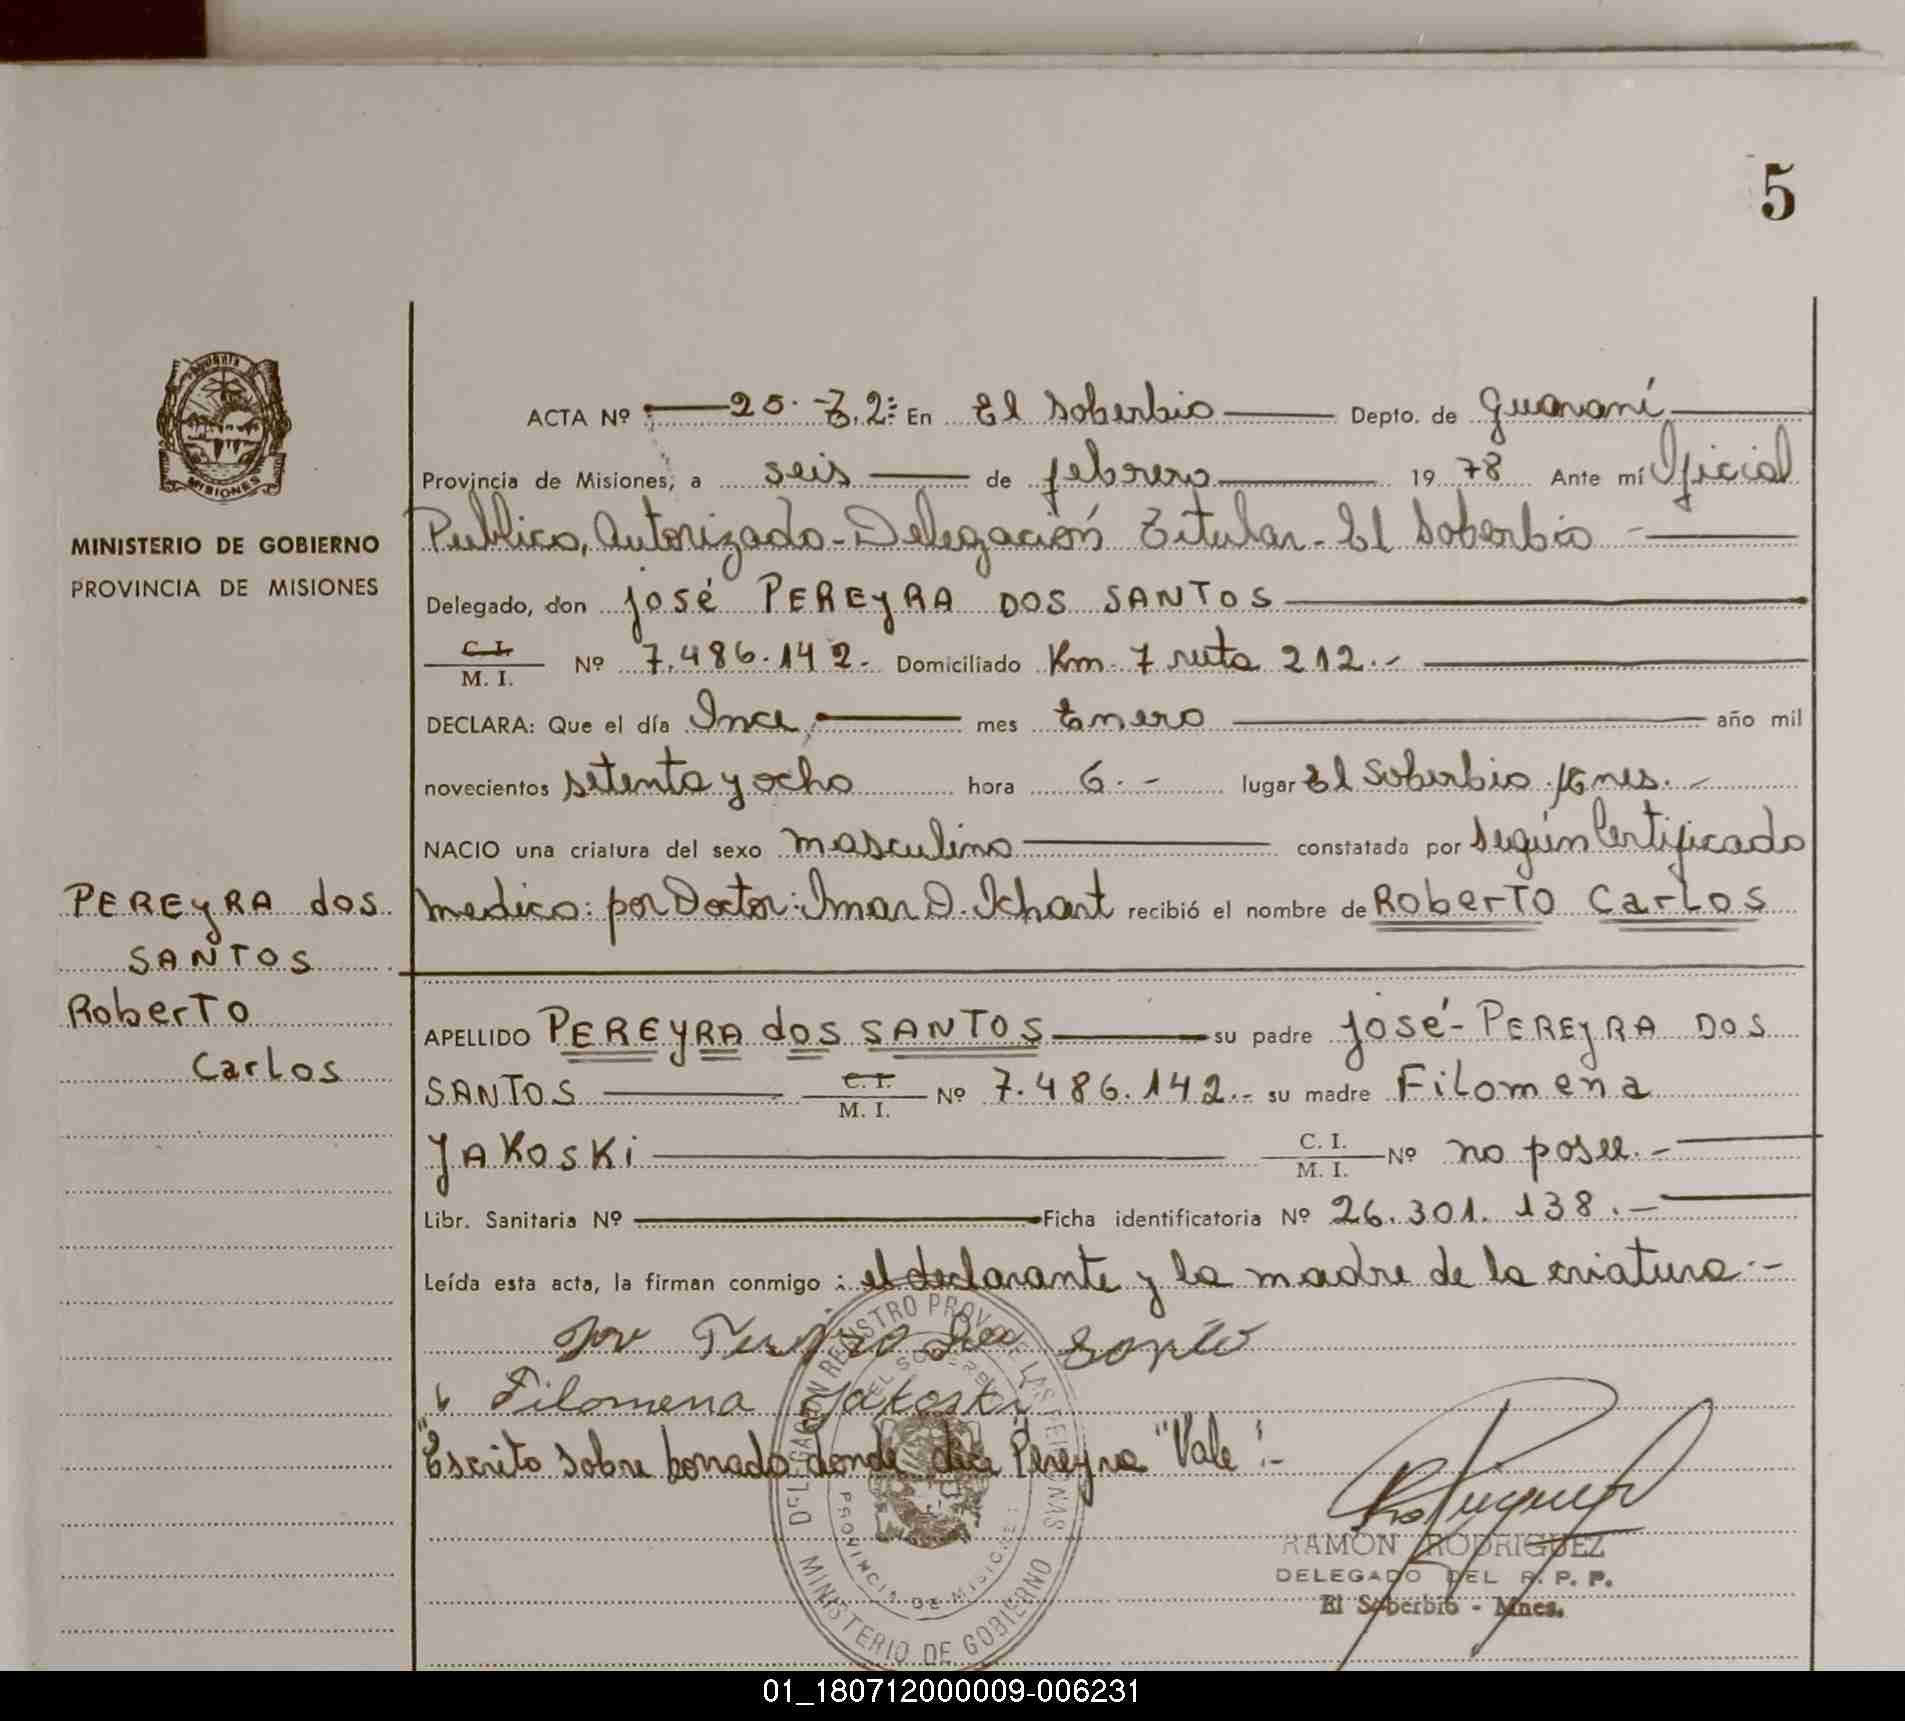 5
MINISTERIO DE GOBIERNO
PROVINCIA DE MISIONES
PEREyRA dos
SANTOS
RoberTo
CarLos
ACTA Nº 25. T.2: En El Soberbio Depto. de Guaraní
Provincia de Misiones, a seis de febrero 19 78 Ante mí Oficial
Publico, Autorizado - Delegación Titular - El Soberbio -
Delegado, don José PEREyRA DOS SANTOS
C. I. / M. I. Nº 7.486.142.- Domiciliado Km. 7 ruta 212.-
DECLARA: Que el día Once mes Enero año mil
novecientos setenta y ocho hora 6.- lugar El Soberbio. Mnes.-
NACIO una criatura del sexo masculino constatada por según Certificado
medico: por Doctor: Imar D. Ichart recibió el nombre de RoberTo CarLos
APELLIDO PEREyRA dos SANTOS su padre José - PEREyRA DOS
SANTOS C. I. / M. I. Nº 7.486.142.- su madre Filomena
JAKosKi C. I. / M. I. Nº no posee.-
Libr. Sanitaria Nº Ficha identificatoria Nº 26.301.138.-
Leída esta acta, la firman conmigo: el declarante y la madre de la criatura.-
Filomena Jakoski
"Escrito sobre borrado donde dice Pereyra "Vale".-
DELEGACION REGISTRO PROV. DE LAS PERSONAS
EL SOBERBIO
PROVINCIA DE MISIONES
MINISTERIO DE GOBIERNO
RAMON RODRIGUEZ
DELEGADO DEL R. P. P.
El Soberbio - Mnes.
01_180712000009-006231